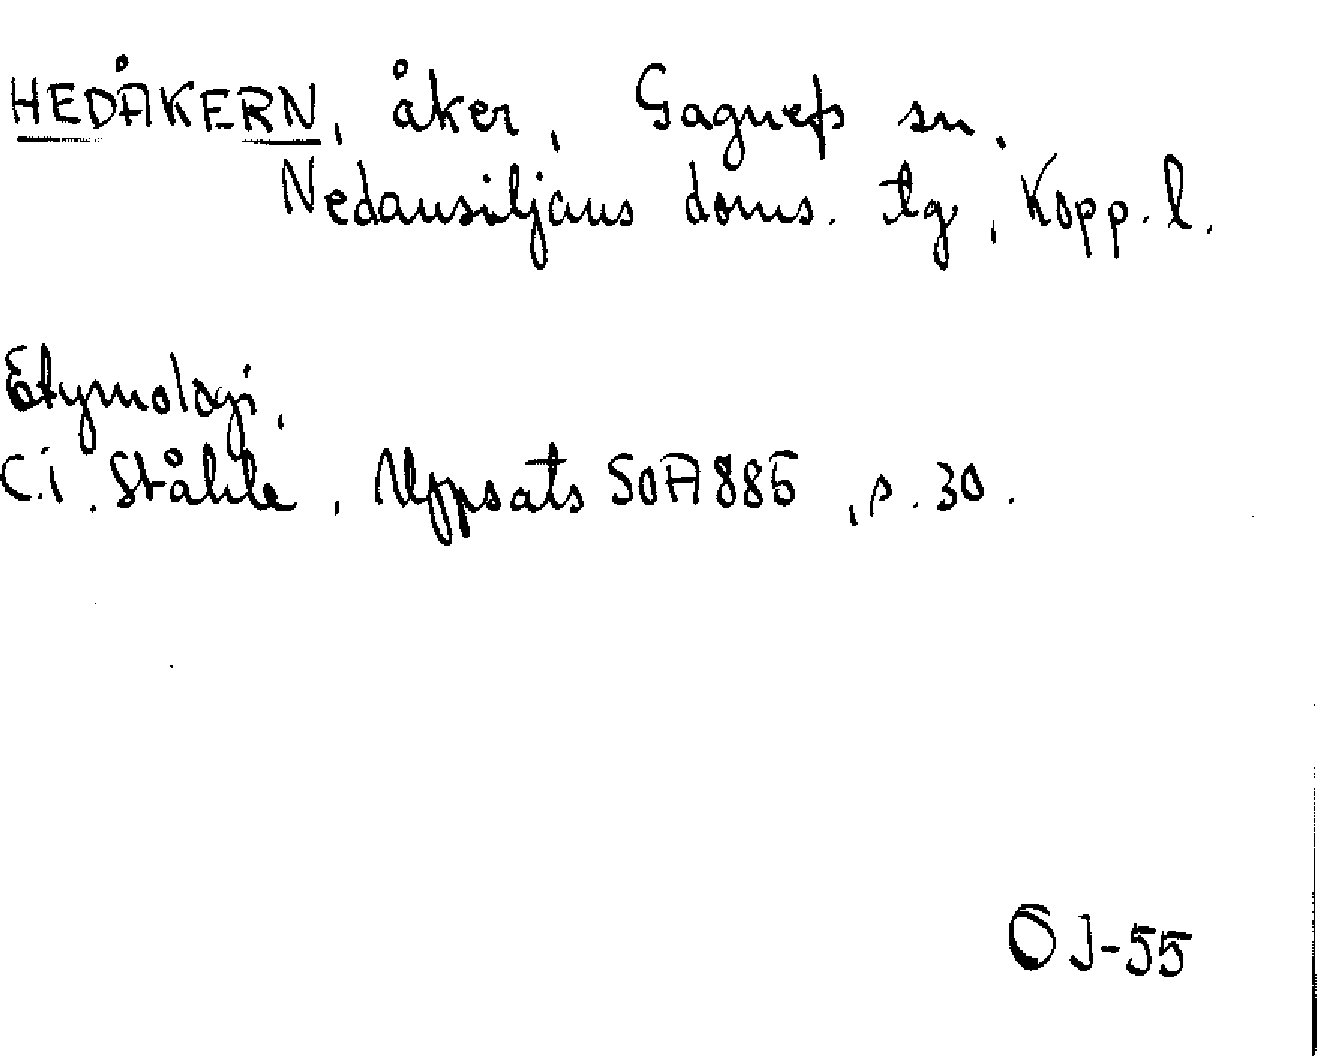 HEDÅKERN, åker, Gagnefs sn.
Nedansiljans doms. tg, Kopp. l.
Etymologi.
C.I. Ståhle, Uppsats SOA 885, s. 30.
OJ-55